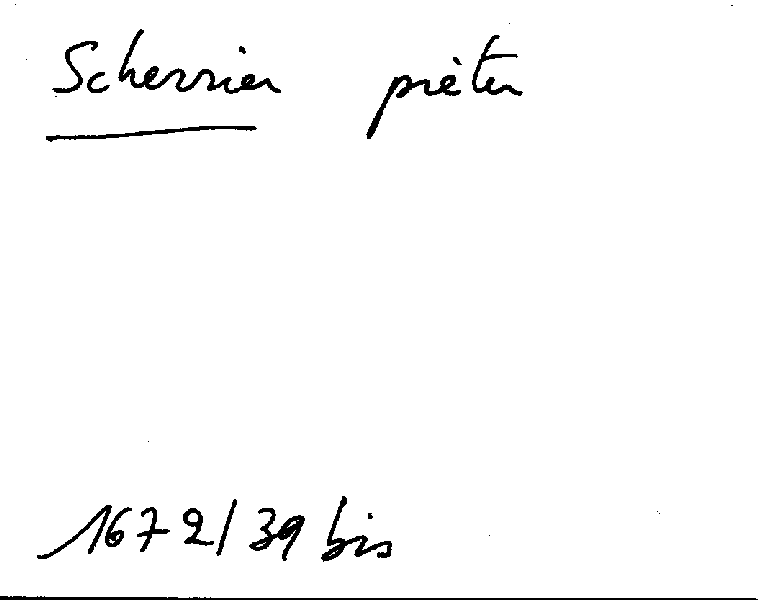 Scherrier pièter
1672/39 bis